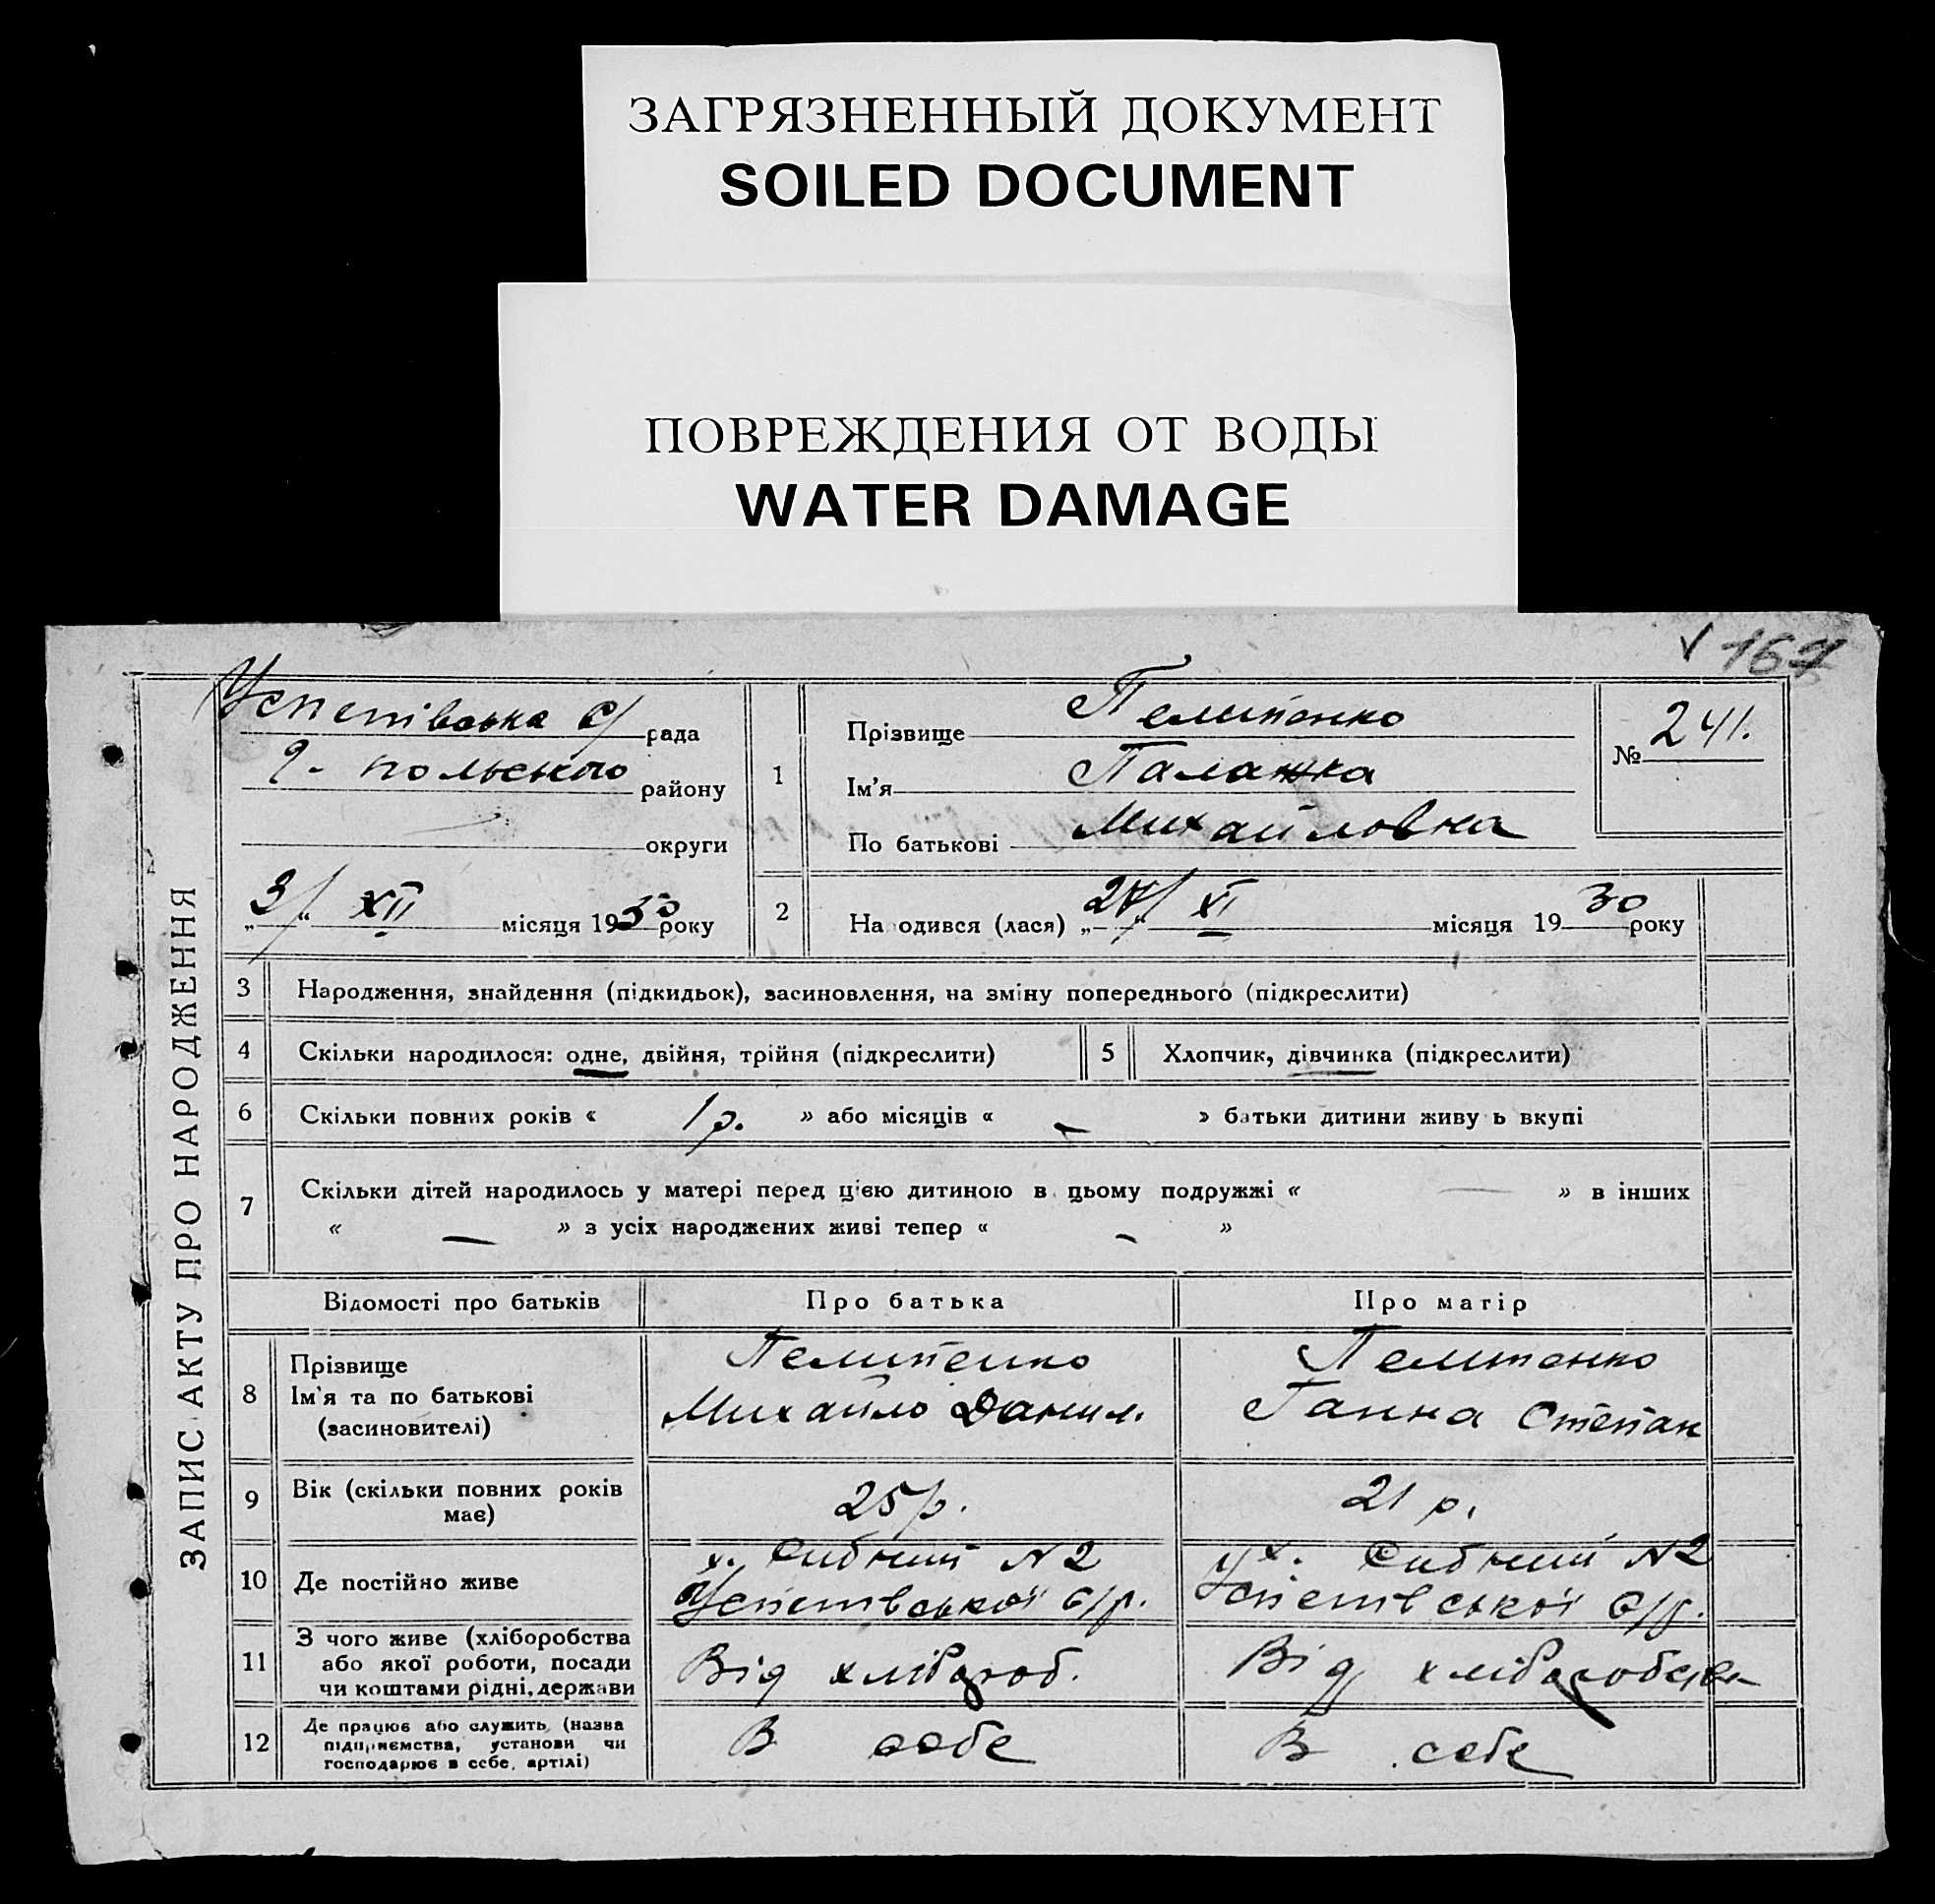 ЗАГРЯЗНЕННЫЙ ДОКУМЕНТ
SOILED DOCUMENT
ПОВРЕЖДЕНИЯ ОТ ВОДЫ
WATER DAMAGE
ЗАПИС АКТУ ПРО НАРОДЖЕННЯ
Успетівська с/ рада
польського району
округи
„3/“ XII місяця 1930 року
1
Прізвище Пелипенко
Ім'я Палажка
По батькові Михайловна
№ 241.
2
На одився (лася) „ “ XI місяця 1930 року
3 Народження, знайдення (підкидьок), засиновлення, на зміну попереднього (підкреслити)
4 Скільки народилося: одне, двійня, трійня (підкреслити)
5 Хлопчик, дівчинка (підкреслити)
6 Скільки повних років « 1 р. » або місяців « – » батьки дитини живу ь вкупі
7 Скільки дітей народилось у матері перед цією дитиною в цьому подружжі « — » в інших
« — » з усіх народжених живі тепер « – »
Відомості про батьків Про батька Про матір
8 Прізвище
Ім'я та по батькові
(засиновителі)
Пелипенко
Михайло Данил.
Пелипенко
Ганна Степан
9 Вік (скільки повних років
має)
25 р.
21 р.
10 Де постійно живе
х. N2
Успетівської с/р.
х. N2
Успетівської с/р.
11 З чого живе (хліборобства
або якої роботи, посади
чи коштами рідні, держави
Від хлібороб.
Від хліборобства
12 Де працює або служить (назва
підприємства, установи чи
господарює в себе, артілі)
В себе
В себе